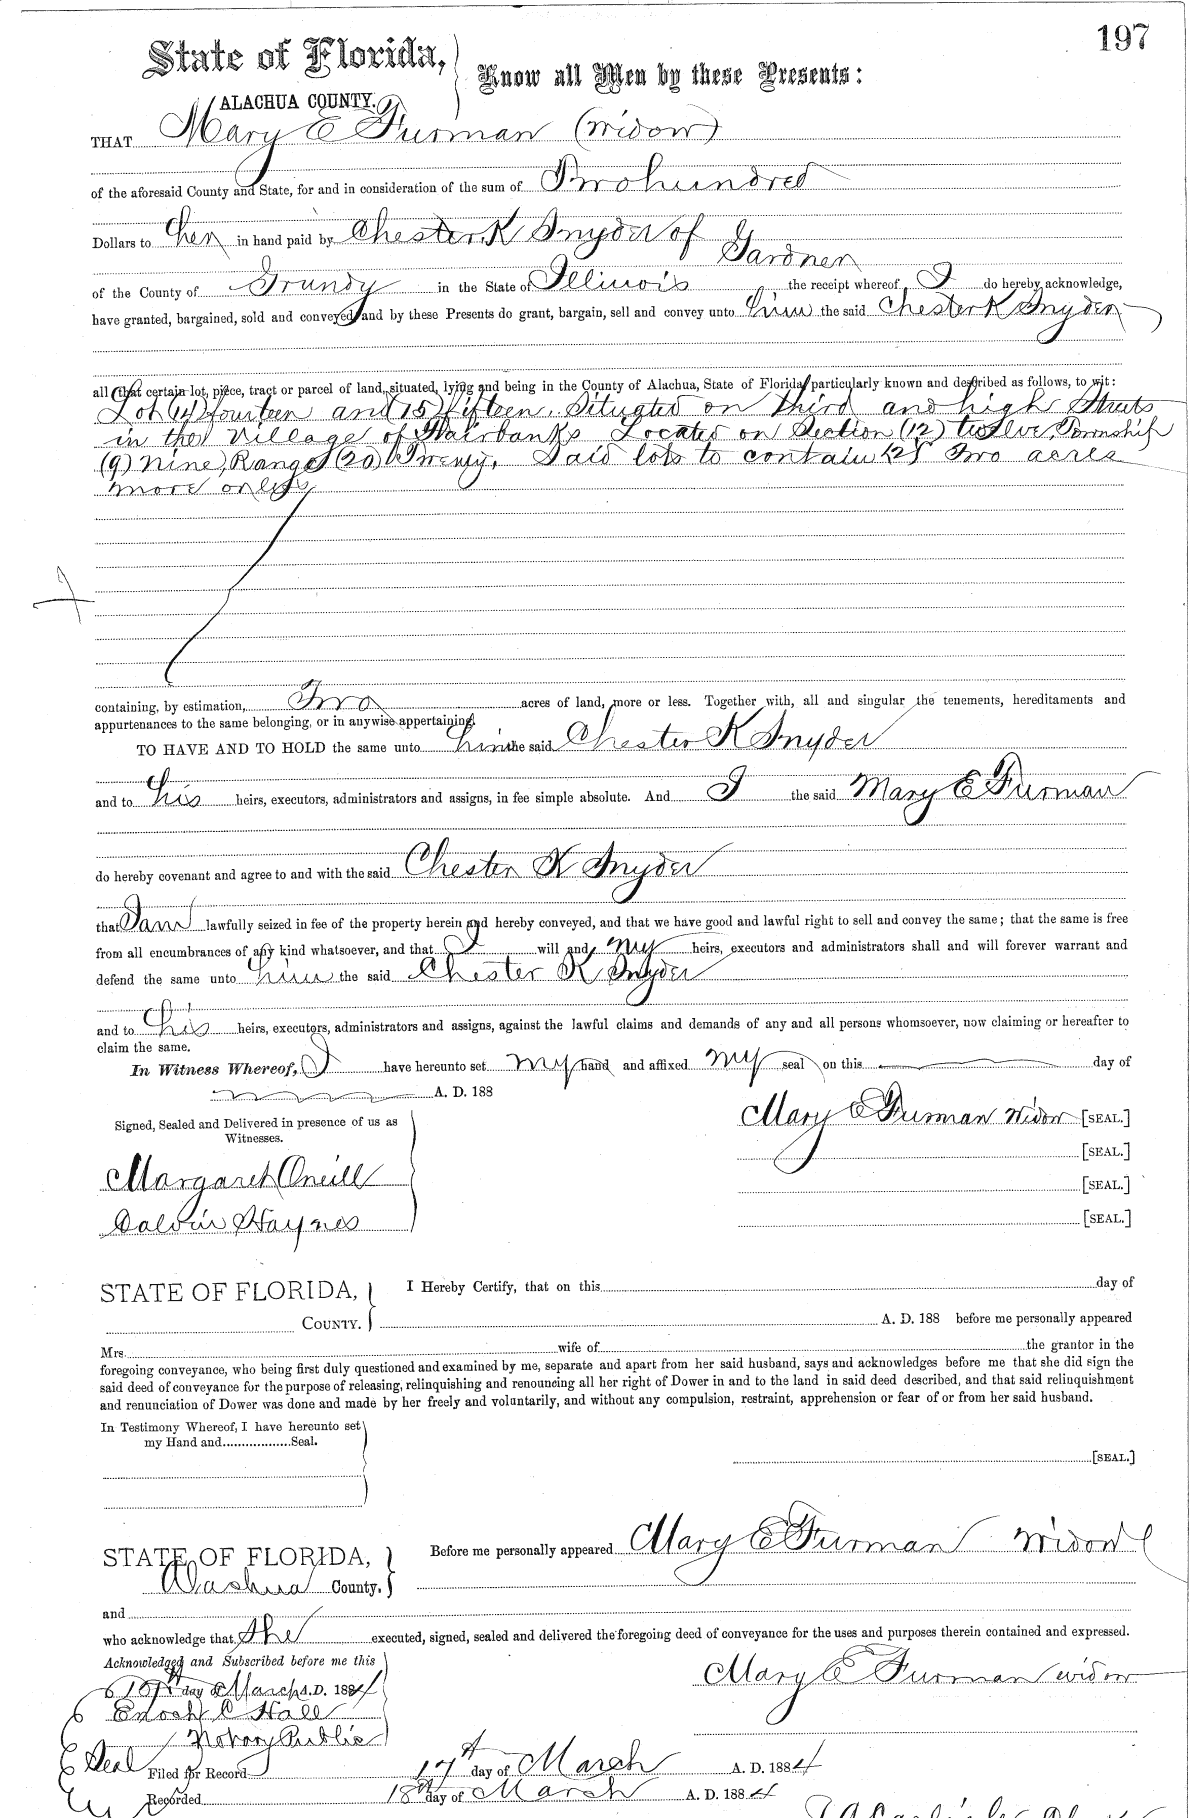 197
State of Florida,
ALACHUA COUNTY.
Know all Men by these Presents:
THAT Mary E Furman (widow)
of the aforesaid County and State, for and in consideration of the sum of Two hundred
Dollars to her in hand paid by Chester K Snyder of Gardner
of the County of Grundy in the State of Illinois the receipt whereof I do hereby acknowledge,
have granted, bargained, sold and conveyed and by these Presents do grant, bargain, sell and convey unto him the said Chester K Snyder
all that certain lot, piece, tract or parcel of land, situated, lying and being in the County of Alachua, State of Florida, particularly known and described as follows, to wit:
Lot (14) fourteen and (15) fifteen. Situated on third and high Streets
in the village of Fairbanks Located on Section (12) twelve, Township
(9) nine, Range (20) Twenty. Said lots to contain (2) Two acres
more or less
containing, by estimation, Two acres of land, more or less. Together with, all and singular the tenements, hereditaments and
appurtenances to the same belonging, or in anywise appertaining.
TO HAVE AND TO HOLD the same unto him the said Chester K Snyder
and to his heirs, executors, administrators and assigns, in fee simple absolute. And I the said Mary E Furman
do hereby covenant and agree to and with the said Chester K Snyder
that I am lawfully seized in fee of the property herein and hereby conveyed, and that we have good and lawful right to sell and convey the same; that the same is free
from all encumbrances of any kind whatsoever, and that I will and my heirs, executors and administrators shall and will forever warrant and
defend the same unto him the said Chester K Snyder
and to his heirs, executors, administrators and assigns, against the lawful claims and demands of any and all persons whomsoever, now claiming or hereafter to
claim the same.
In Witness Whereof, I have hereunto set my hand and affixed my seal on this day of
A. D. 188
Mary E Furman widow [SEAL.]
Signed, Sealed and Delivered in presence of us as
Witnesses.
[SEAL.]
Margaret Oneill [SEAL.]
Calvin Haynes [SEAL.]
STATE OF FLORIDA,
COUNTY.
I Hereby Certify, that on this day of
A. D. 188 before me personally appeared
Mrs. wife of the grantor in the
foregoing conveyance, who being first duly questioned and examined by me, separate and apart from her said husband, says and acknowledges before me that she did sign the
said deed of conveyance for the purpose of releasing, relinquishing and renouncing all her right of Dower in and to the land in said deed described, and that said relinquishment
and renunciation of Dower was done and made by her freely and voluntarily, and without any compulsion, restraint, apprehension or fear of or from her said husband.
In Testimony Whereof, I have hereunto set
my Hand and.................Seal.
[SEAL.]
STATE OF FLORIDA,
Alachua County.
Before me personally appeared Mary E Furman widow
and
who acknowledge that she executed, signed, sealed and delivered the foregoing deed of conveyance for the uses and purposes therein contained and expressed.
Acknowledged and Subscribed before me this
day of March A.D. 1884
Mary E Furman widow
Enoch C Hall
Notary Public
Seal
Filed for Record 17th day of March A. D. 1884
Recorded 18th day of March A. D. 1884